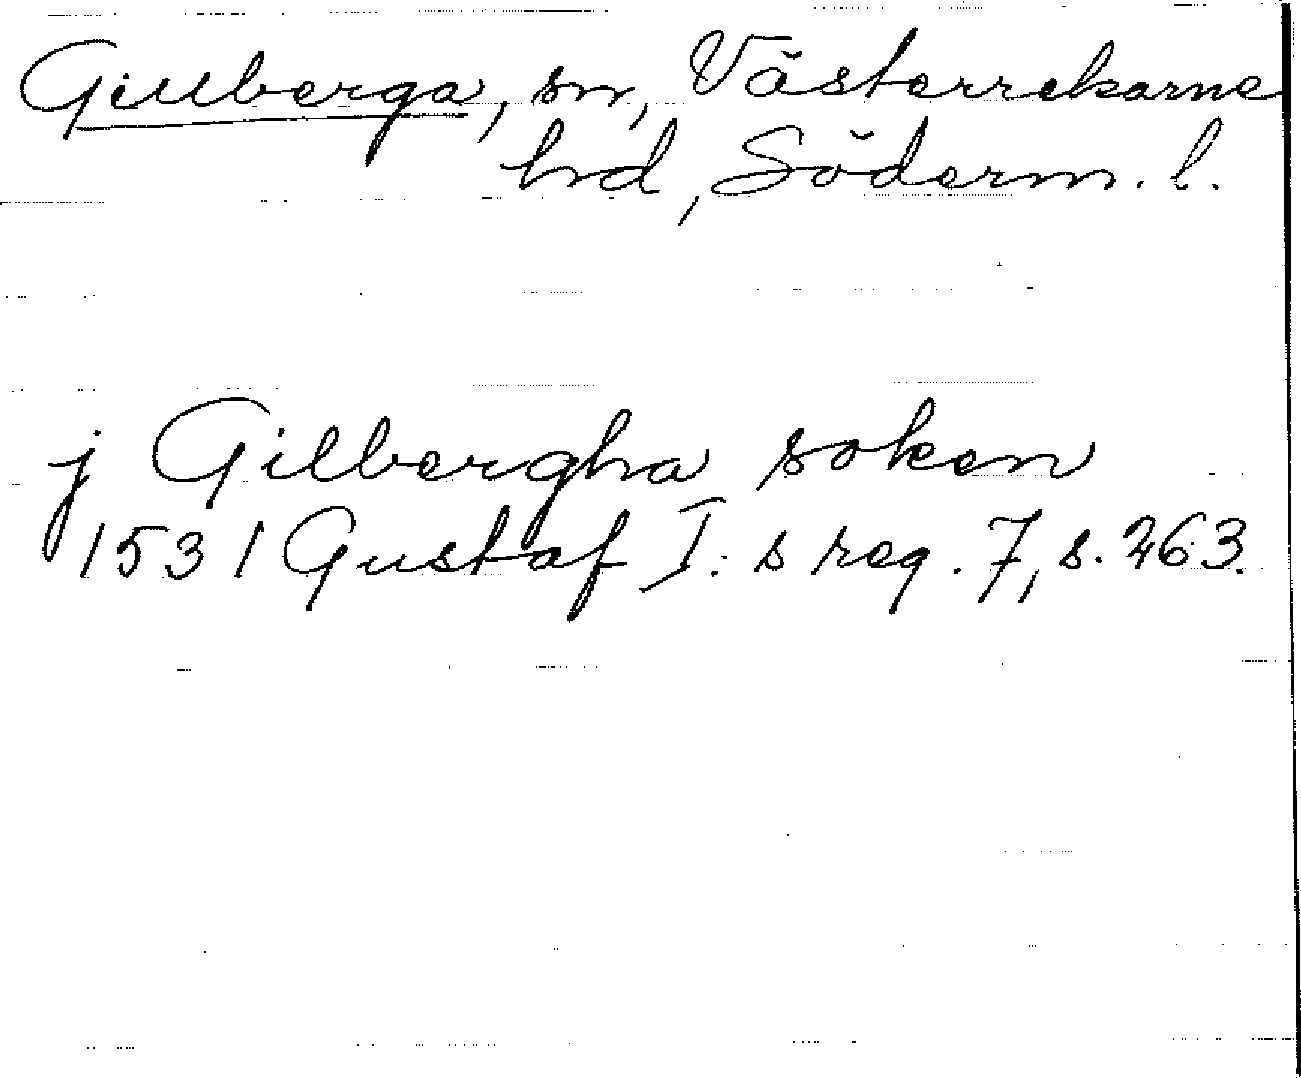 Gillberga, sn, Västerrekarne
hd, Söderm. l.
j Gilbergha soken
1531 Gustaf I:s reg. 7, s. 263.